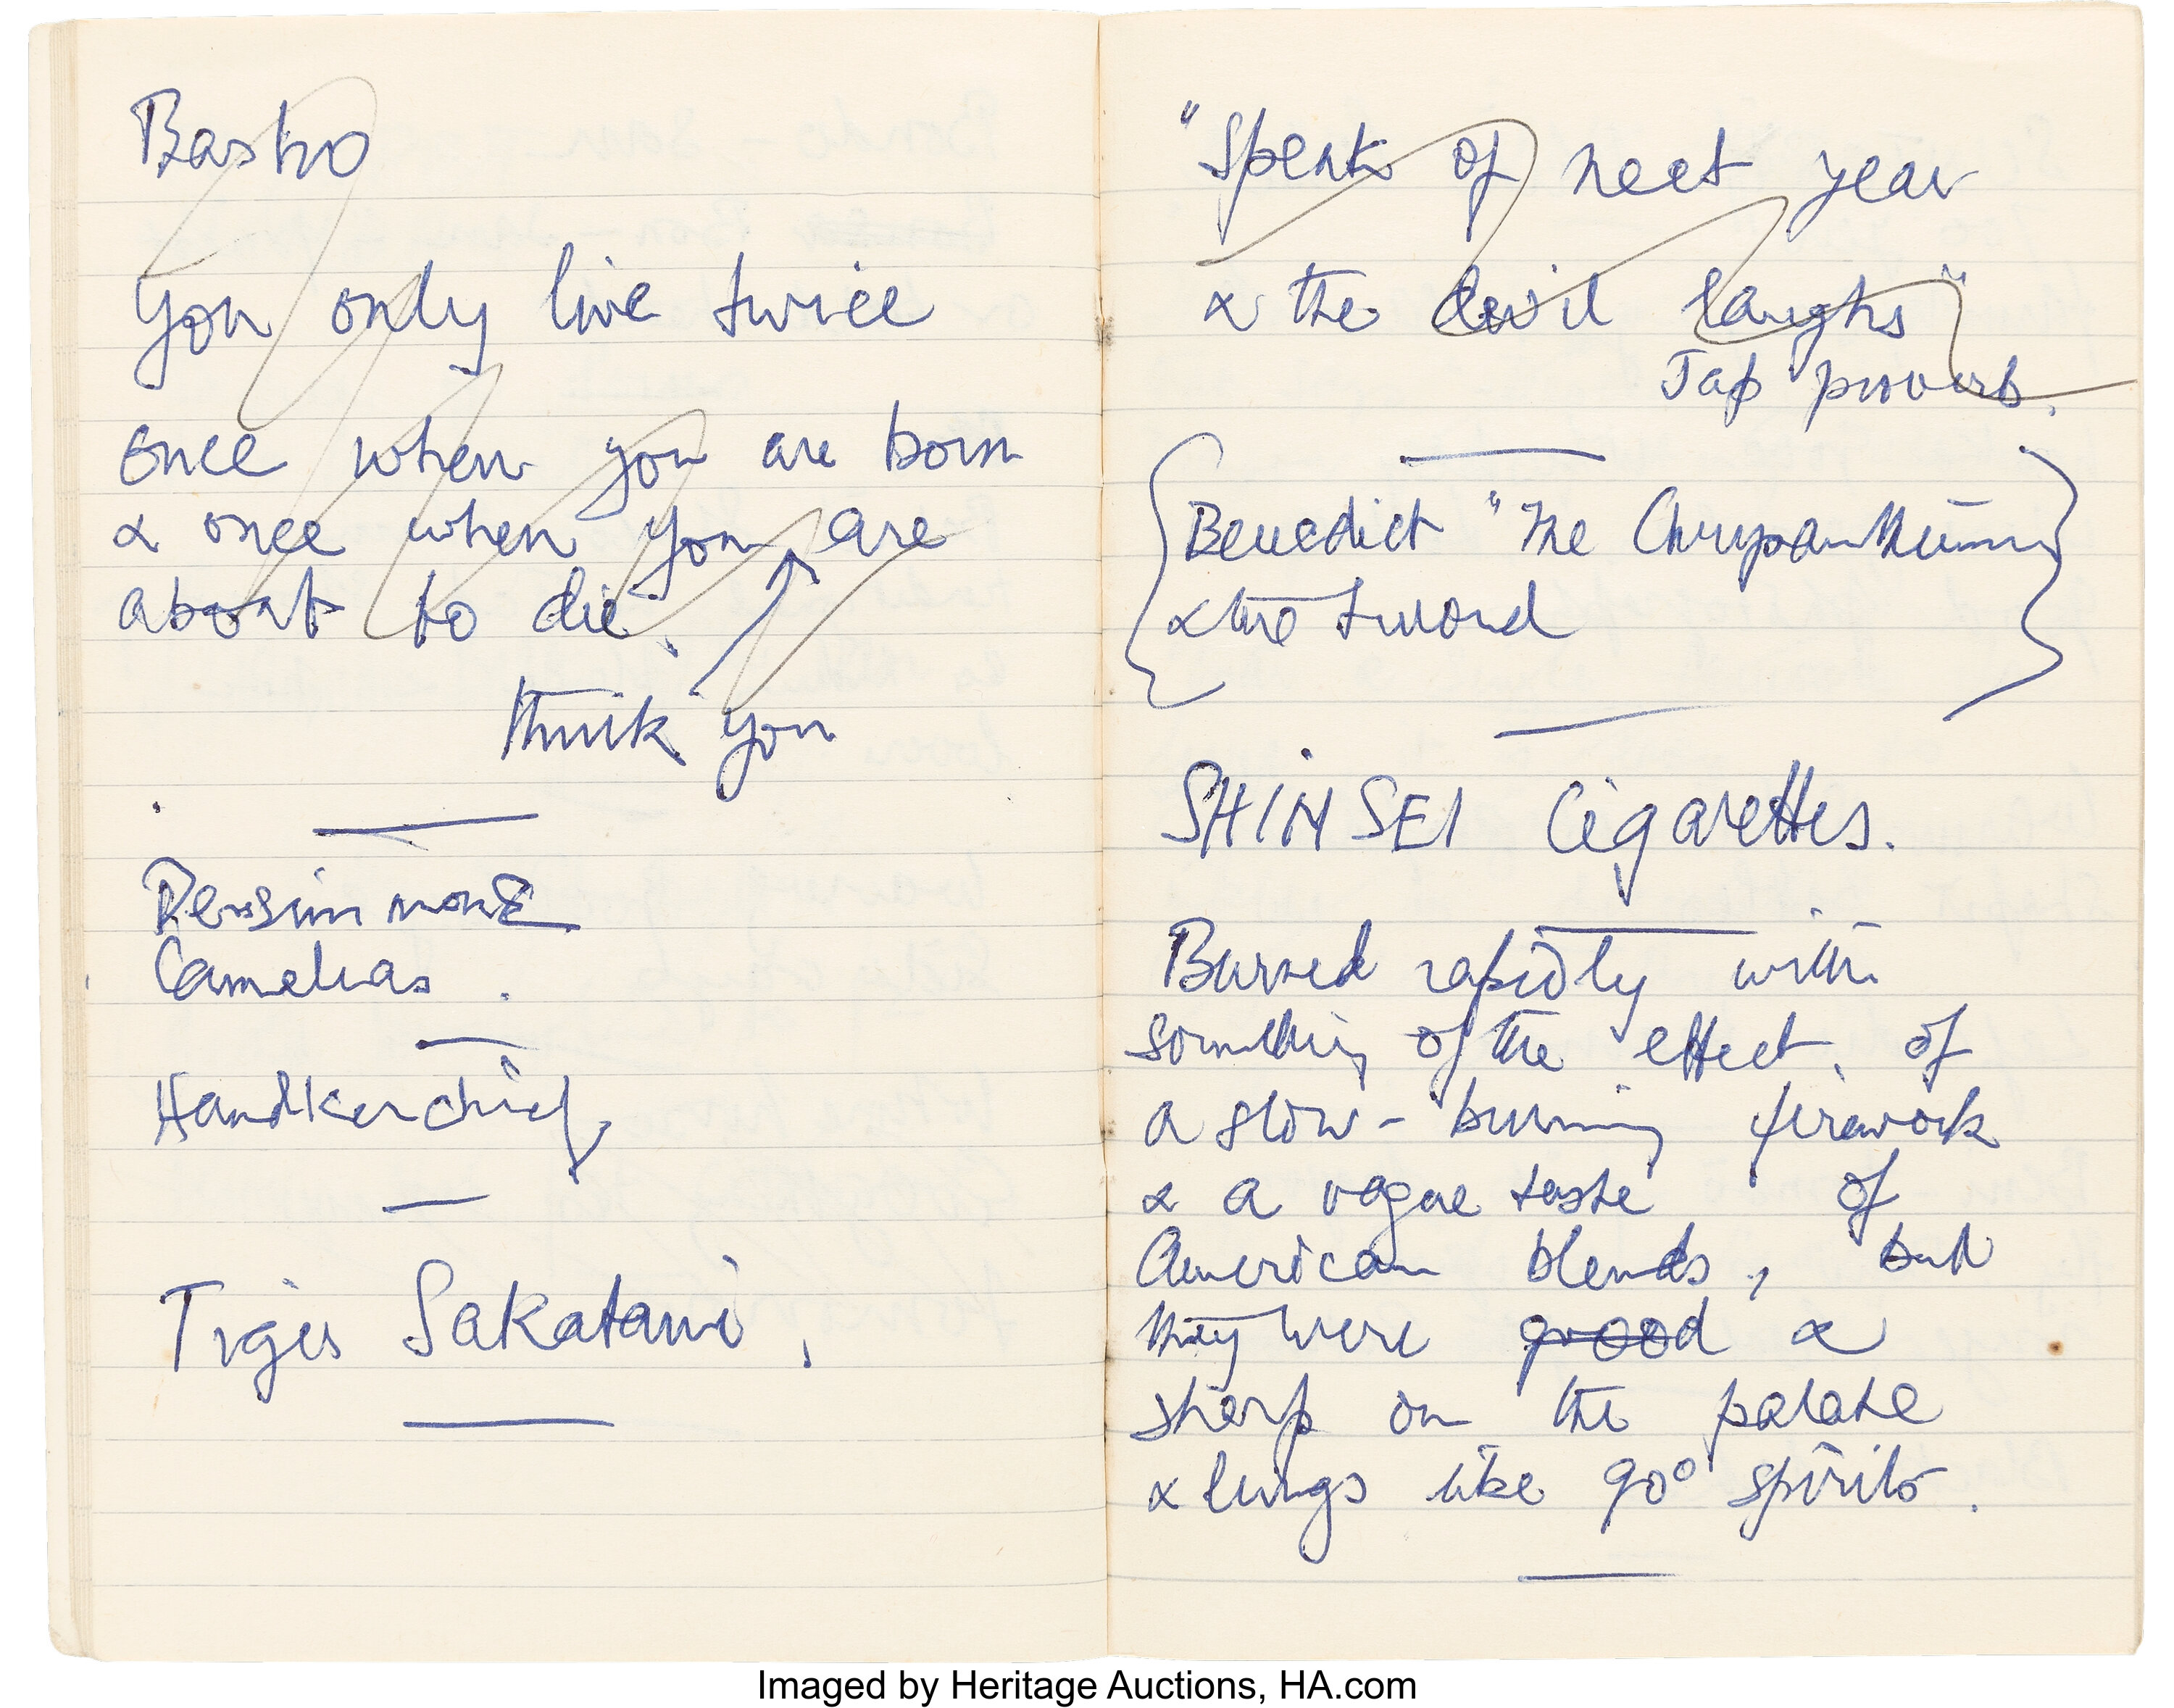 Basho
You only live twice
once when you are born
& once when you are
about to die.
think you
Persimmons
Camelias.
Handkerchief
Tiger Sakatani.
"Speak of next year
& the devil laughs"
Jap proverb.
Benedict "The Chrysanthemum
& the Sword
SHINSEI Cigarettes.
Burned rapidly with
something of the effect of
a slow-burning firework
& a vague taste of
American blends, but
they were good &
sharp on the palate
& lungs like 90° spirits.
Imaged by Heritage Auctions, HA.com